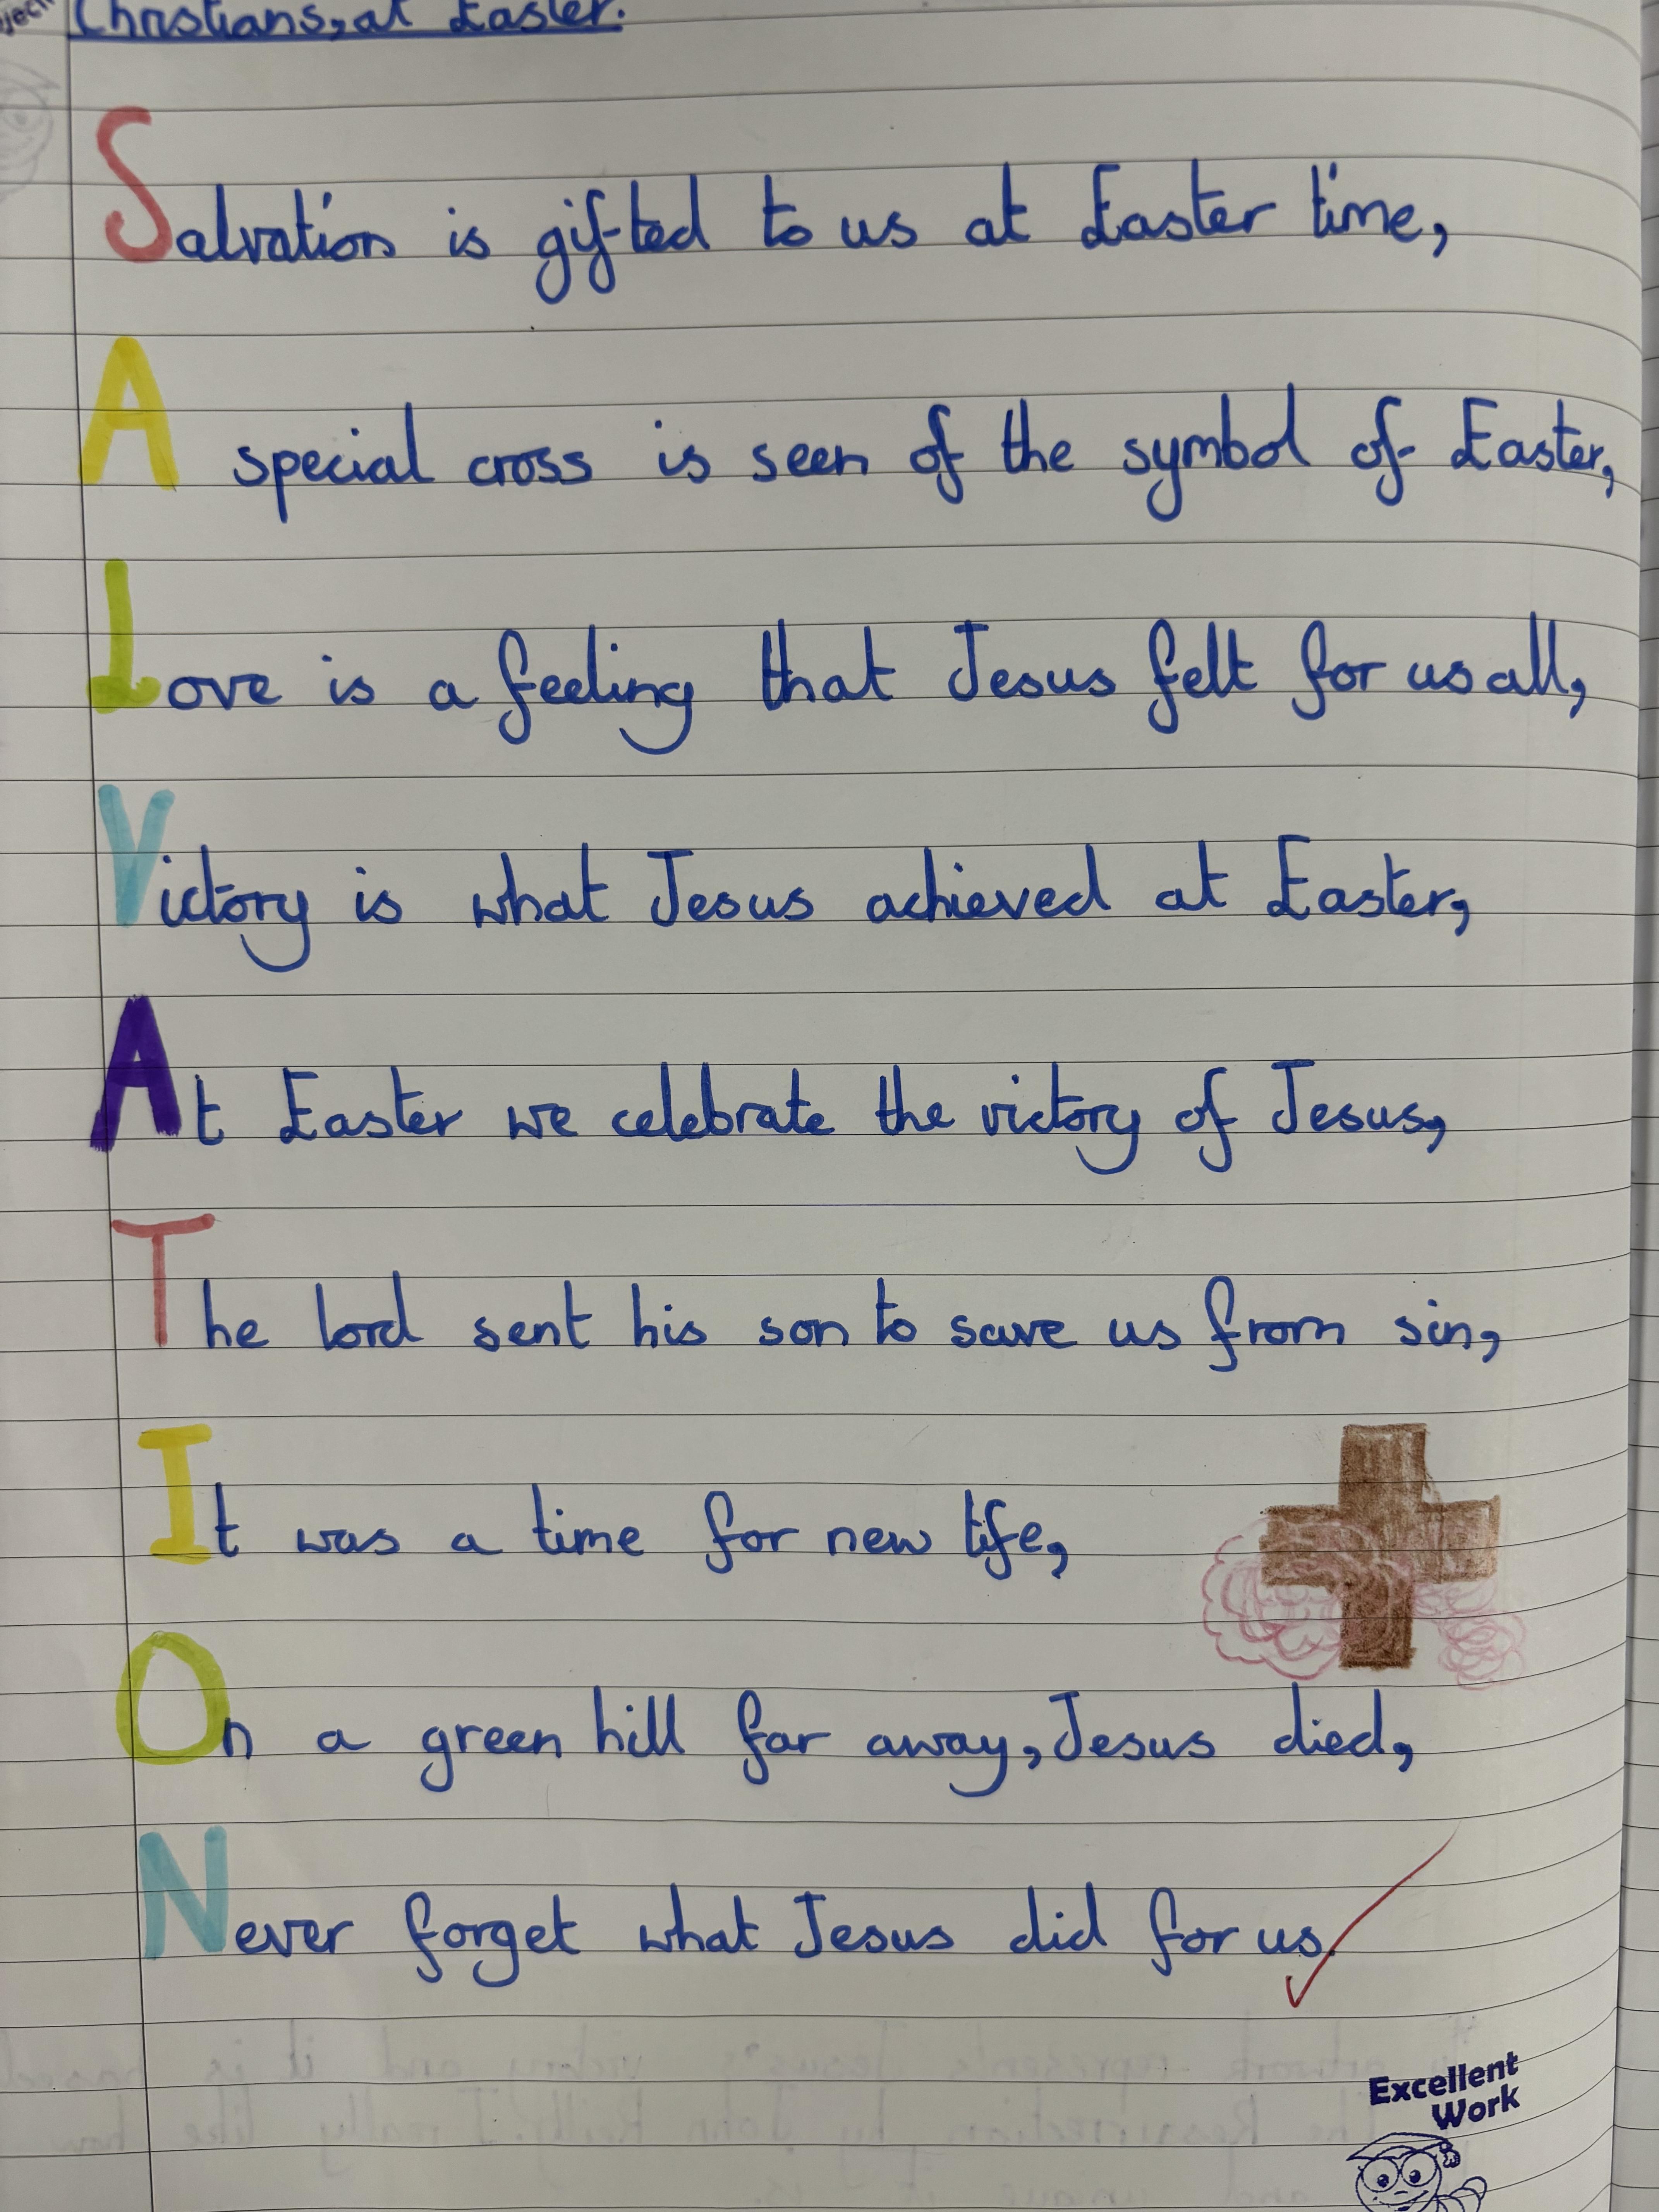 Christians, at Easter.
Salvation is gifted to us at Easter time,
A special cross is seen of the symbol of Easter,
Love is a feeling that Jesus felt for us all,
Victory is what Jesus achieved at Easter,
At Easter we celebrate the victory of Jesus,
The lord sent his son to save us from sin,
It was a time for new life,
On a green hill far away, Jesus died,
Never forget what Jesus did for us.
Excellent
Work